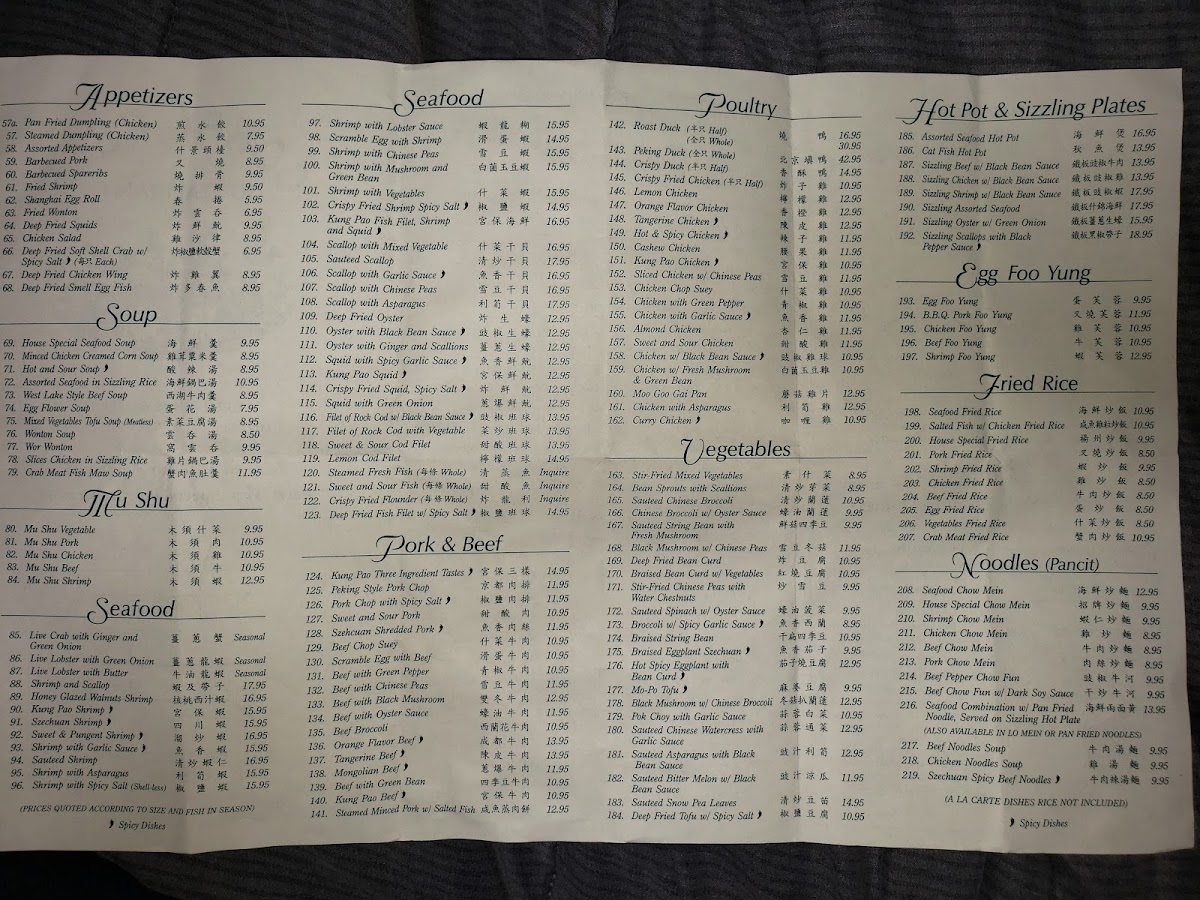 Appetizers
57a. Pan Fried Dumpling (Chicken) 煎水餃 10.95
57. Steamed Dumpling (Chicken) 蒸水餃 7.95
58. Assorted Appetizers 什景頭檯 9.50
59. Barbecued Pork 叉燒 8.95
60. Barbecued Spareribs 燒排骨 9.95
61. Fried Shrimp 炸蝦 9.50
62. Shanghai Egg Roll 春捲 5.95
63. Fried Wonton 炸雲吞 6.95
64. Deep Fried Squids 炸鮮魷 9.95
65. Chicken Salad 雞沙律 8.95
66. Deep Fried Soft Shell Crab w/ 炸椒鹽軟殼蟹 6.95
Spicy Salt (每只 Each)
67. Deep Fried Chicken Wing 炸雞翼 8.95
68. Deep Fried Smell Egg Fish 炸多春魚 8.95
Soup
69. House Special Seafood Soup 海鮮羹 9.95
70. Minced Chicken Creamed Corn Soup 雞茸粟米羹 8.95
71. Hot and Sour Soup 酸辣湯 8.95
72. Assorted Seafood in Sizzling Rice 海鮮鍋巴湯 10.95
73. West Lake Style Beef Soup 西湖牛肉羹 8.95
74. Egg Flower Soup 蛋花湯 7.95
75. Mixed Vegetables Tofu Soup (Meatless) 素菜豆腐湯 8.95
76. Wonton Soup 雲吞湯 8.50
77. Wor Wonton 窩雲吞 9.95
78. Slices Chicken in Sizzling Rice 雞片鍋巴湯 9.95
79. Crab Meat Fish Maw Soup 蟹肉魚肚羹 11.95
Mu Shu
80. Mu Shu Vegetable 木須什菜 9.95
81. Mu Shu Pork 木須肉 10.95
82. Mu Shu Chicken 木須雞 10.95
83. Mu Shu Beef 木須牛 10.95
84. Mu Shu Shrimp 木須蝦 12.95
Seafood
85. Live Crab with Ginger and 薑蔥蟹 Seasonal
Green Onion
86. Live Lobster with Green Onion 薑蔥龍蝦 Seasonal
87. Live Lobster with Butter 牛油龍蝦 Seasonal
88. Shrimp and Scallop 蝦及帶子 17.95
89. Honey Glazed Walnuts Shrimp 核桃西汁蝦 16.95
90. Kung Pao Shrimp 宮保蝦 15.95
91. Szechuan Shrimp 四川蝦 15.95
92. Sweet & Pungent Shrimp 溜炒蝦 16.95
93. Shrimp with Garlic Sauce 魚香蝦 15.95
94. Sauteed Shrimp 清炒蝦仁 16.95
95. Shrimp with Asparagus 利筍蝦 15.95
96. Shrimp with Spicy Salt (Shell-less) 椒鹽蝦 15.95
(PRICES QUOTED ACCORDING TO SIZE AND FISH IN SEASON)
Spicy Dishes
Seafood
97. Shrimp with Lobster Sauce 蝦龍糊 15.95
98. Scramble Egg with Shrimp 滑蛋蝦 15.95
99. Shrimp with Chinese Peas 雪豆蝦 15.95
100. Shrimp with Mushroom and 白菌玉豆蝦 15.95
Green Bean
101. Shrimp with Vegetables 什菜蝦 15.95
102. Crispy Fried Shrimp Spicy Salt 椒鹽蝦 14.95
103. Kung Pao Fish Filet, Shrimp 宮保海鮮 16.95
and Squid
104. Scallop with Mixed Vegetable 什菜干貝 16.95
105. Sauteed Scallop 清炒干貝 17.95
106. Scallop with Garlic Sauce 魚香干貝 16.95
107. Scallop with Chinese Peas 雪豆干貝 16.95
108. Scallop with Asparagus 利筍干貝 17.95
109. Deep Fried Oyster 炸生蠔 12.95
110. Oyster with Black Bean Sauce 豉椒生蠔 12.95
111. Oyster with Ginger and Scallions 薑蔥生蠔 12.95
112. Squid with Spicy Garlic Sauce 魚香鮮魷 12.95
113. Kung Pao Squid 宮保鮮魷 12.95
114. Crispy Fried Squid, Spicy Salt 炸鮮魷 12.95
115. Squid with Green Onion 蔥爆鮮魷 12.95
116. Filet of Rock Cod w/ Black Bean Sauce 豉椒班球 13.95
117. Filet of Rock Cod with Vegetable 菜炒班球 13.95
118. Sweet & Sour Cod Filet 甜酸班球 13.95
119. Lemon Cod Filet 檸檬班球 14.95
120. Steamed Fresh Fish (每條 Whole) 清蒸魚 Inquire
121. Sweet and Sour Fish (每條 Whole) 甜酸魚 Inquire
122. Crispy Fried Flounder (每條 Whole) 炸龍利 Inquire
123. Deep Fried Fish Filet w/ Spicy Salt 椒鹽班球 14.95
Pork & Beef
124. Kung Pao Three Ingredient Tastes 宮保三樣 14.95
125. Peking Style Pork Chop 京都肉排 11.95
126. Pork Chop with Spicy Salt 椒鹽肉排 11.95
127. Sweet and Sour Pork 甜酸肉 10.95
128. Szechuan Shredded Pork 魚香肉絲 11.95
129. Beef Chop Suey 什菜牛肉 10.95
130. Scramble Egg with Beef 滑蛋牛肉 10.95
131. Beef with Green Pepper 青椒牛肉 10.95
132. Beef with Chinese Peas 雪豆牛肉 11.95
133. Beef with Black Mushroom 雙冬牛肉 12.95
134. Beef with Oyster Sauce 蠔油牛肉 11.95
135. Beef Broccoli 西蘭花牛肉 10.95
136. Orange Flavor Beef 成都牛肉 13.95
137. Tangerine Beef 陳皮牛肉 13.95
138. Mongolian Beef 蔥爆牛肉 11.95
139. Beef with Green Bean 四季豆牛肉 10.95
140. Kung Pao Beef 宮保牛肉 10.95
141. Steamed Minced Pork w/ Salted Fish 咸魚蒸肉餅 12.95
Poultry
142. Roast Duck (半只 Half) 燒鴨 16.95
(全只 Whole) 30.95
143. Peking Duck (全只 Whole) 北京填鴨 42.95
144. Crispy Duck (半只 Half) 香酥鴨 14.95
145. Crispy Fried Chicken (半只 Half) 炸子雞 10.95
146. Lemon Chicken 檸檬雞 12.95
147. Orange Flavor Chicken 香橙雞 12.95
148. Tangerine Chicken 陳皮雞 12.95
149. Hot & Spicy Chicken 辣子雞 11.95
150. Cashew Chicken 腰果雞 11.95
151. Kung Pao Chicken 宮保雞 10.95
152. Sliced Chicken w/ Chinese Peas 雪豆雞 11.95
153. Chicken Chop Suey 什菜雞 10.95
154. Chicken with Green Pepper 青椒雞 10.95
155. Chicken with Garlic Sauce 魚香雞 11.95
156. Almond Chicken 杏仁雞 11.95
157. Sweet and Sour Chicken 甜酸雞 11.95
158. Chicken w/ Black Bean Sauce 豉椒雞球 10.95
159. Chicken w/ Fresh Mushroom 白菌玉豆雞 10.95
& Green Bean
160. Moo Goo Gai Pan 蘑菇雞片 12.95
161. Chicken with Asparagus 利筍雞 12.95
162. Curry Chicken 咖喱雞 10.95
Vegetables
163. Stir-Fried Mixed Vegetables 素什菜 8.95
164. Bean Sprouts with Scallions 清炒芽菜 8.95
165. Sauteed Chinese Broccoli 清炒蘭蓮 10.95
166. Chinese Broccoli w/ Oyster Sauce 蠔油蘭蓮 9.95
167. Sauteed String Bean with 鮮菇四季豆 9.95
Fresh Mushroom
168. Black Mushroom w/ Chinese Peas 雪豆冬菇 11.95
169. Deep Fried Bean Curd 炸豆腐 10.95
170. Braised Bean Curd w/ Vegetables 紅燒豆腐 10.95
171. Stir-Fried Chinese Peas with 炒雪豆 9.95
Water Chestnuts
172. Sauteed Spinach w/ Oyster Sauce 蠔油菠菜 9.95
173. Broccoli w/ Spicy Garlic Sauce 魚香西蘭 8.95
174. Braised String Bean 干扁四季豆 10.95
175. Braised Eggplant Szechuan 魚香茄子 9.95
176. Hot Spicy Eggplant with 茄子燒豆腐 12.95
Bean Curd
177. Mo-Po Tofu 麻婆豆腐 9.95
178. Black Mushroom w/ Chinese Broccoli 冬菇扒蘭蓮 12.95
179. Pok Choy with Garlic Sauce 蒜蓉白菜 10.95
180. Sauteed Chinese Watercress with 蒜蓉通菜 12.95
Garlic Sauce
181. Sauteed Asparagus with Black 豉汁利筍 12.95
Bean Sauce
182. Sauteed Bitter Melon w/ Black 豉汁涼瓜 11.95
Bean Sauce
183. Sauteed Snow Pea Leaves 清炒豆苗 14.95
184. Deep Fried Tofu w/ Spicy Salt 椒鹽豆腐 10.95
Hot Pot & Sizzling Plates
185. Assorted Seafood Hot Pot 海鮮煲 16.95
186. Cat Fish Hot Pot 秋魚煲 13.95
187. Sizzling Beef w/ Black Bean Sauce 鐵板豉椒牛肉 13.95
188. Sizzling Chicken w/ Black Bean Sauce 鐵板豉椒雞 13.95
189. Sizzling Shrimp w/ Black Bean Sauce 鐵板豉椒蝦 17.95
190. Sizzling Assorted Seafood 鐵板什錦海鮮 17.95
191. Sizzling Oyster w/ Green Onion 鐵板薑蔥生蠔 15.95
192. Sizzling Scallops with Black 鐵板黑椒帶子 18.95
Pepper Sauce
Egg Foo Yung
193. Egg Foo Yung 蛋芙蓉 9.95
194. B.B.Q. Pork Foo Yung 叉燒芙蓉 11.95
195. Chicken Foo Yung 雞芙蓉 10.95
196. Beef Foo Yung 牛芙蓉 10.95
197. Shrimp Foo Yung 蝦芙蓉 12.95
Fried Rice
198. Seafood Fried Rice 海鮮炒飯 10.95
199. Salted Fish w/ Chicken Fried Rice 咸魚雞粒炒飯 10.95
200. House Special Fried Rice 楊州炒飯 9.95
201. Pork Fried Rice 叉燒炒飯 8.50
202. Shrimp Fried Rice 蝦炒飯 9.95
203. Chicken Fried Rice 雞炒飯 8.50
204. Beef Fried Rice 牛肉炒飯 8.50
205. Egg Fried Rice 蛋炒飯 8.50
206. Vegetables Fried Rice 什菜炒飯 8.50
207. Crab Meat Fried Rice 蟹肉炒飯 10.95
Noodles (Pancit)
208. Seafood Chow Mein 海鮮炒麵 12.95
209. House Special Chow Mein 招牌炒麵 9.95
210. Shrimp Chow Mein 蝦仁炒麵 9.95
211. Chicken Chow Mein 雞炒麵 8.95
212. Beef Chow Mein 牛肉炒麵 8.95
213. Pork Chow Mein 肉絲炒麵 8.95
214. Beef Pepper Chow Fun 豉椒牛河 9.95
215. Beef Chow Fun w/ Dark Soy Sauce 干炒牛河 9.95
216. Seafood Combination w/ Pan Fried 海鮮兩面黃 13.95
Noodle, Served on Sizzling Hot Plate
(ALSO AVAILABLE IN LO MEIN OR PAN FRIED NOODLES)
217. Beef Noodles Soup 牛肉湯麵 9.95
218. Chicken Noodles Soup 雞湯麵 9.95
219. Szechuan Spicy Beef Noodles 牛肉辣湯麵 9.95
(A LA CARTE DISHES RICE NOT INCLUDED)
Spicy Dishes